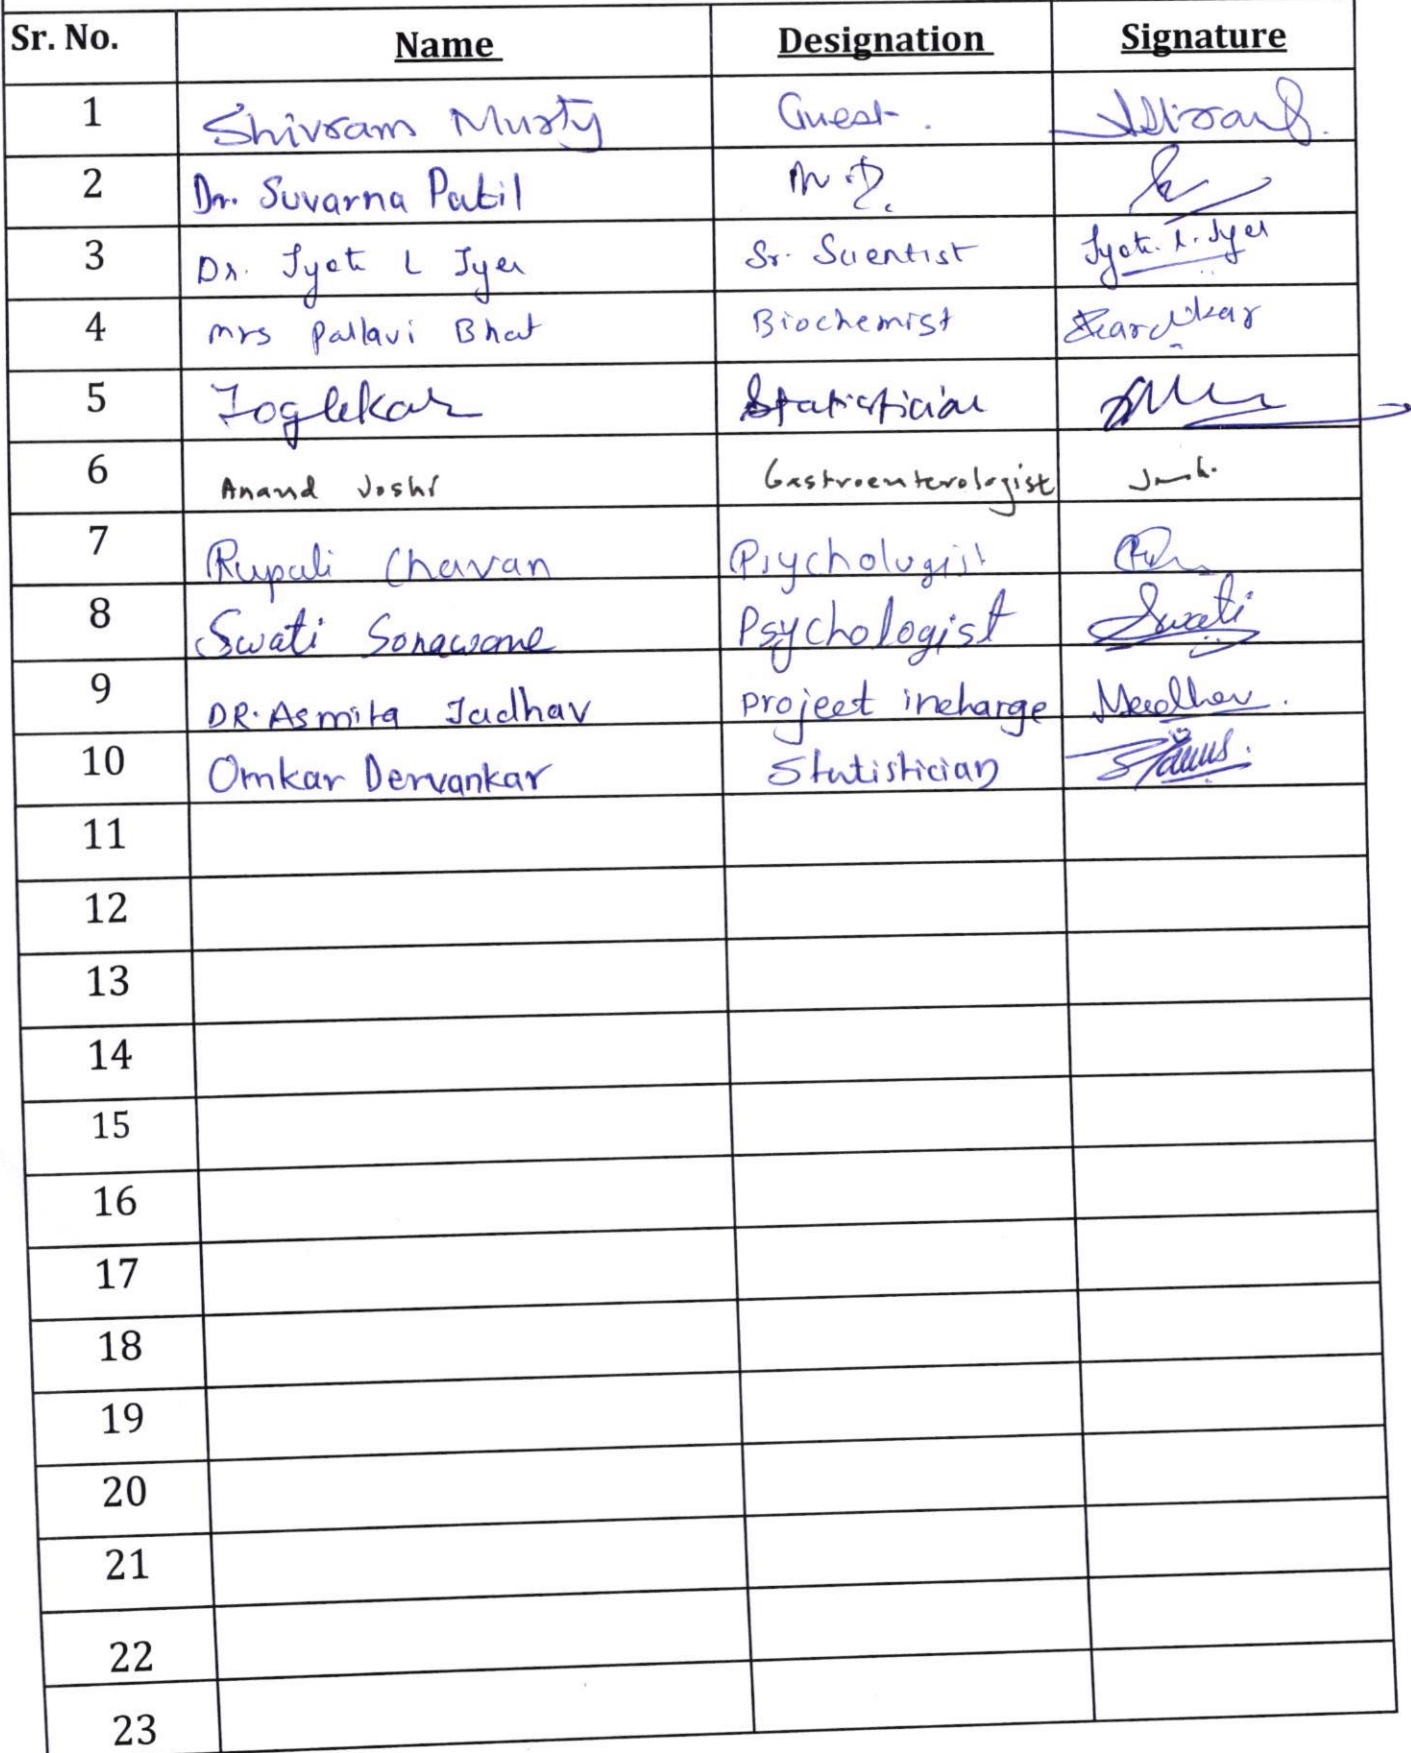 Sr. No. Name Designation Signature
1 Shivram Murty Guest.
2 Dr. Suvarna Patil M.D.
3 Dr. Jyoti L Iyer Sr. Scientist Jyoti. L. Iyer
4 mrs Pallavi Bhat Biochemist
5 Joglekar Statistician
6 Anand Joshi Gastroenterologist
7 Rupali Chavan Psychologist
8 Swati Sonawane Psychologist Swati
9 DR. Asmita Jadhav project incharge
10 Omkar Dervankar Statistician
11
12
13
14
15
16
17
18
19
20
21
22
23